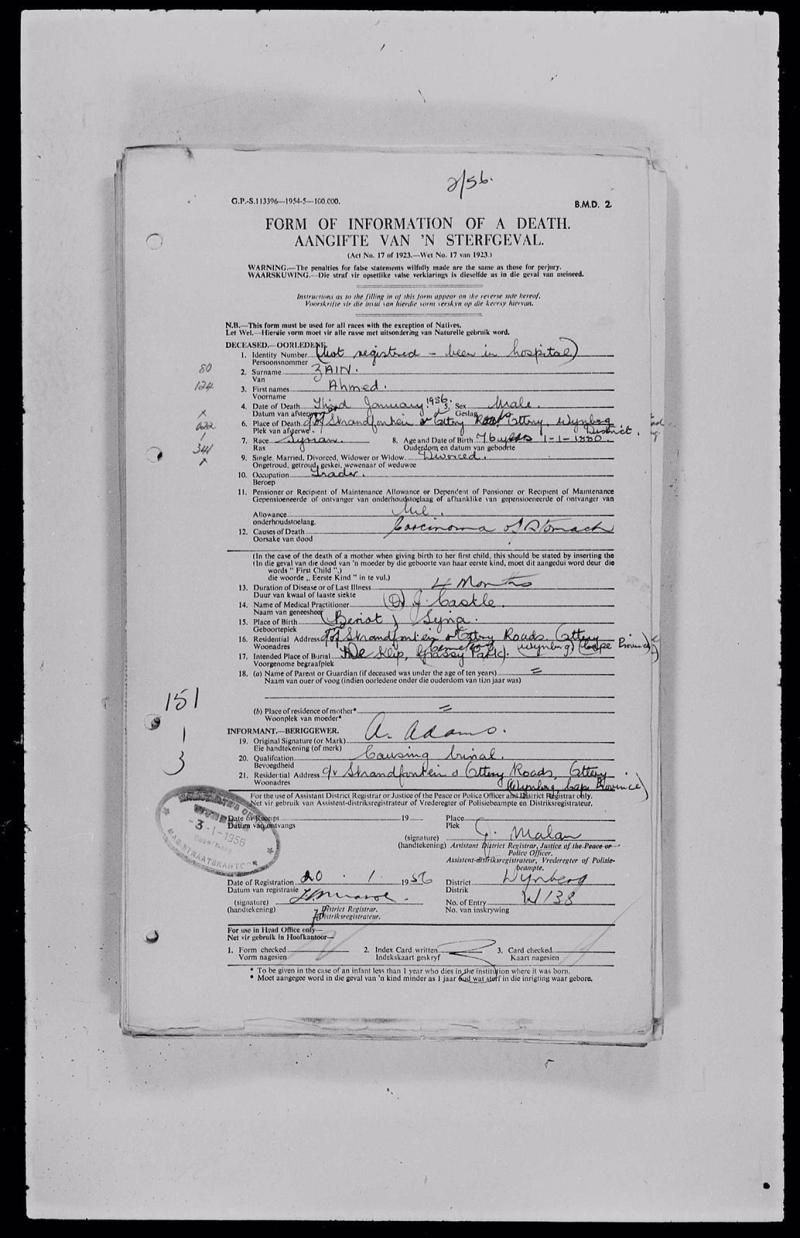 2/56.
G.P.-S.113396—1954-5—100,000.
B.M.D. 2
FORM OF INFORMATION OF A DEATH.
AANGIFTE VAN 'N STERFGEVAL.
(Act No. 17 of 1923.—Wet No. 17 van 1923.)
WARNING.—The penalties for false statements wilfully made are the same as those for perjury.
WAARSKUWING.—Die straf vir opsetlike valse verklarings is dieselfde as in die geval van meineed.
Instructions as to the filling in of this form appear on the reverse side hereof.
Voorskrifte vir die invul van hierdie vorm verskyn op die keersy hiervan.
N.B.—This form must be used for all races with the exception of Natives.
Let Wel.—Hierdie vorm moet vir alle rasse met uitsondering van Naturelle gebruik word.
DECEASED.—OORLEDENE.
1. Identity Number (Not registered – been in hospital)
Persoonsnommer
80
2. Surname ZAIN.
Van
124
3. First names Ahmed.
Voorname
4. Date of Death Third January 1956. 5. Sex Male.
Datum van afsterwe Geslag
6. Place of Death c/o Strandfontein & Ottery Road Ottery, Wynberg District.
Plek van afsterwe
7. Race Syrian. 8. Age and Date of Birth 76 years 1-1-1880.
Ras Ouderdom en datum van geboorte
341
9. Single, Married, Divorced, Widower or Widow Divorced.
Ongetroud, getroud, geskei, wewenaar of weduwee
10. Occupation Trader.
Beroep
11. Pensioner or Recipient of Maintenance Allowance or Dependent of Pensioner or Recipient of Maintenance
Gepensioeneerde of ontvanger van onderhoudstoelaag of afhanklike van gepensioeneerde of ontvanger van
Allowance Nil.
onderhoudstoelaag.
12. Causes of Death Carcinoma of Stomach
Oorsake van dood
(In the case of the death of a mother when giving birth to her first child, this should be stated by inserting the
(In die geval van die dood van 'n moeder by die geboorte van haar eerste kind, moet dit aangedui word deur die
words "First Child".)
die woorde „Eerste Kind" in te vul.)
13. Duration of Disease or of Last Illness 4 Months
Duur van kwaal of laaste siekte
14. Name of Medical Practitioner (D) J. Castle.
Naam van geneesheer
15. Place of Birth (Beriot) Syria.
Geboorteplek
16. Residential Address c/o Strandfontein & Ottery Roads. Ottery
Woonadres Wynberg) (Cape Province)
17. Intended Place of Burial Klip, (Grassy Park).
Voorgenome begraafplek
18. (a) Name of Parent or Guardian (if deceased was under the age of ten years) =
Naam van ouer of voog (indien oorledene onder die ouderdom van tien jaar was)
151
1
3
(b) Place of residence of mother* =
Woonplek van moeder*
INFORMANT.—BERIGGEWER.
19. Original Signature (or Mark) A. Adams.
Eie handtekening (of merk)
20. Qualification Causing burial.
Bevoegdheid
21. Residential Address c/o Strandfontein & Ottery Roads, Ottery.
Woonadres (Wynberg, Cape Province)
For the use of Assistant District Registrar or Justice of the Peace or Police Officer and District Registrar only.
Net vir gebruik van Assistent-distriksregistrateur of Vrederegter of Polisiebeampte en Distriksregistrateur.
Date of Receipt 19 Place
Datum van ontvangs Plek
3-1-1956
(signature) J. Malan
(handtekening) Assistant District Registrar, Justice of the Peace or
Police Officer.
Assistent-distriksregistrateur, Vrederegter of Polisie-
beampte.
Date of Registration 20.1.1956 District Wynberg
Datum van registrasie Distrik
(signature) No. of Entry W138
(handtekening) District Registrar. No. van inskrywing
Distriksregistrateur.
For use in Head Office only—
Net vir gebruik in Hoofkantoor—
1. Form checked 2. Index Card written 3. Card checked
Vorm nagesien Indekskaart geskryf Kaart nagesien
* To be given in the case of an infant less than 1 year who dies in the institution where it was born.
* Moet aangegee word in die geval van 'n kind minder as 1 jaar oud wat sterf in die inrigting waar gebore.